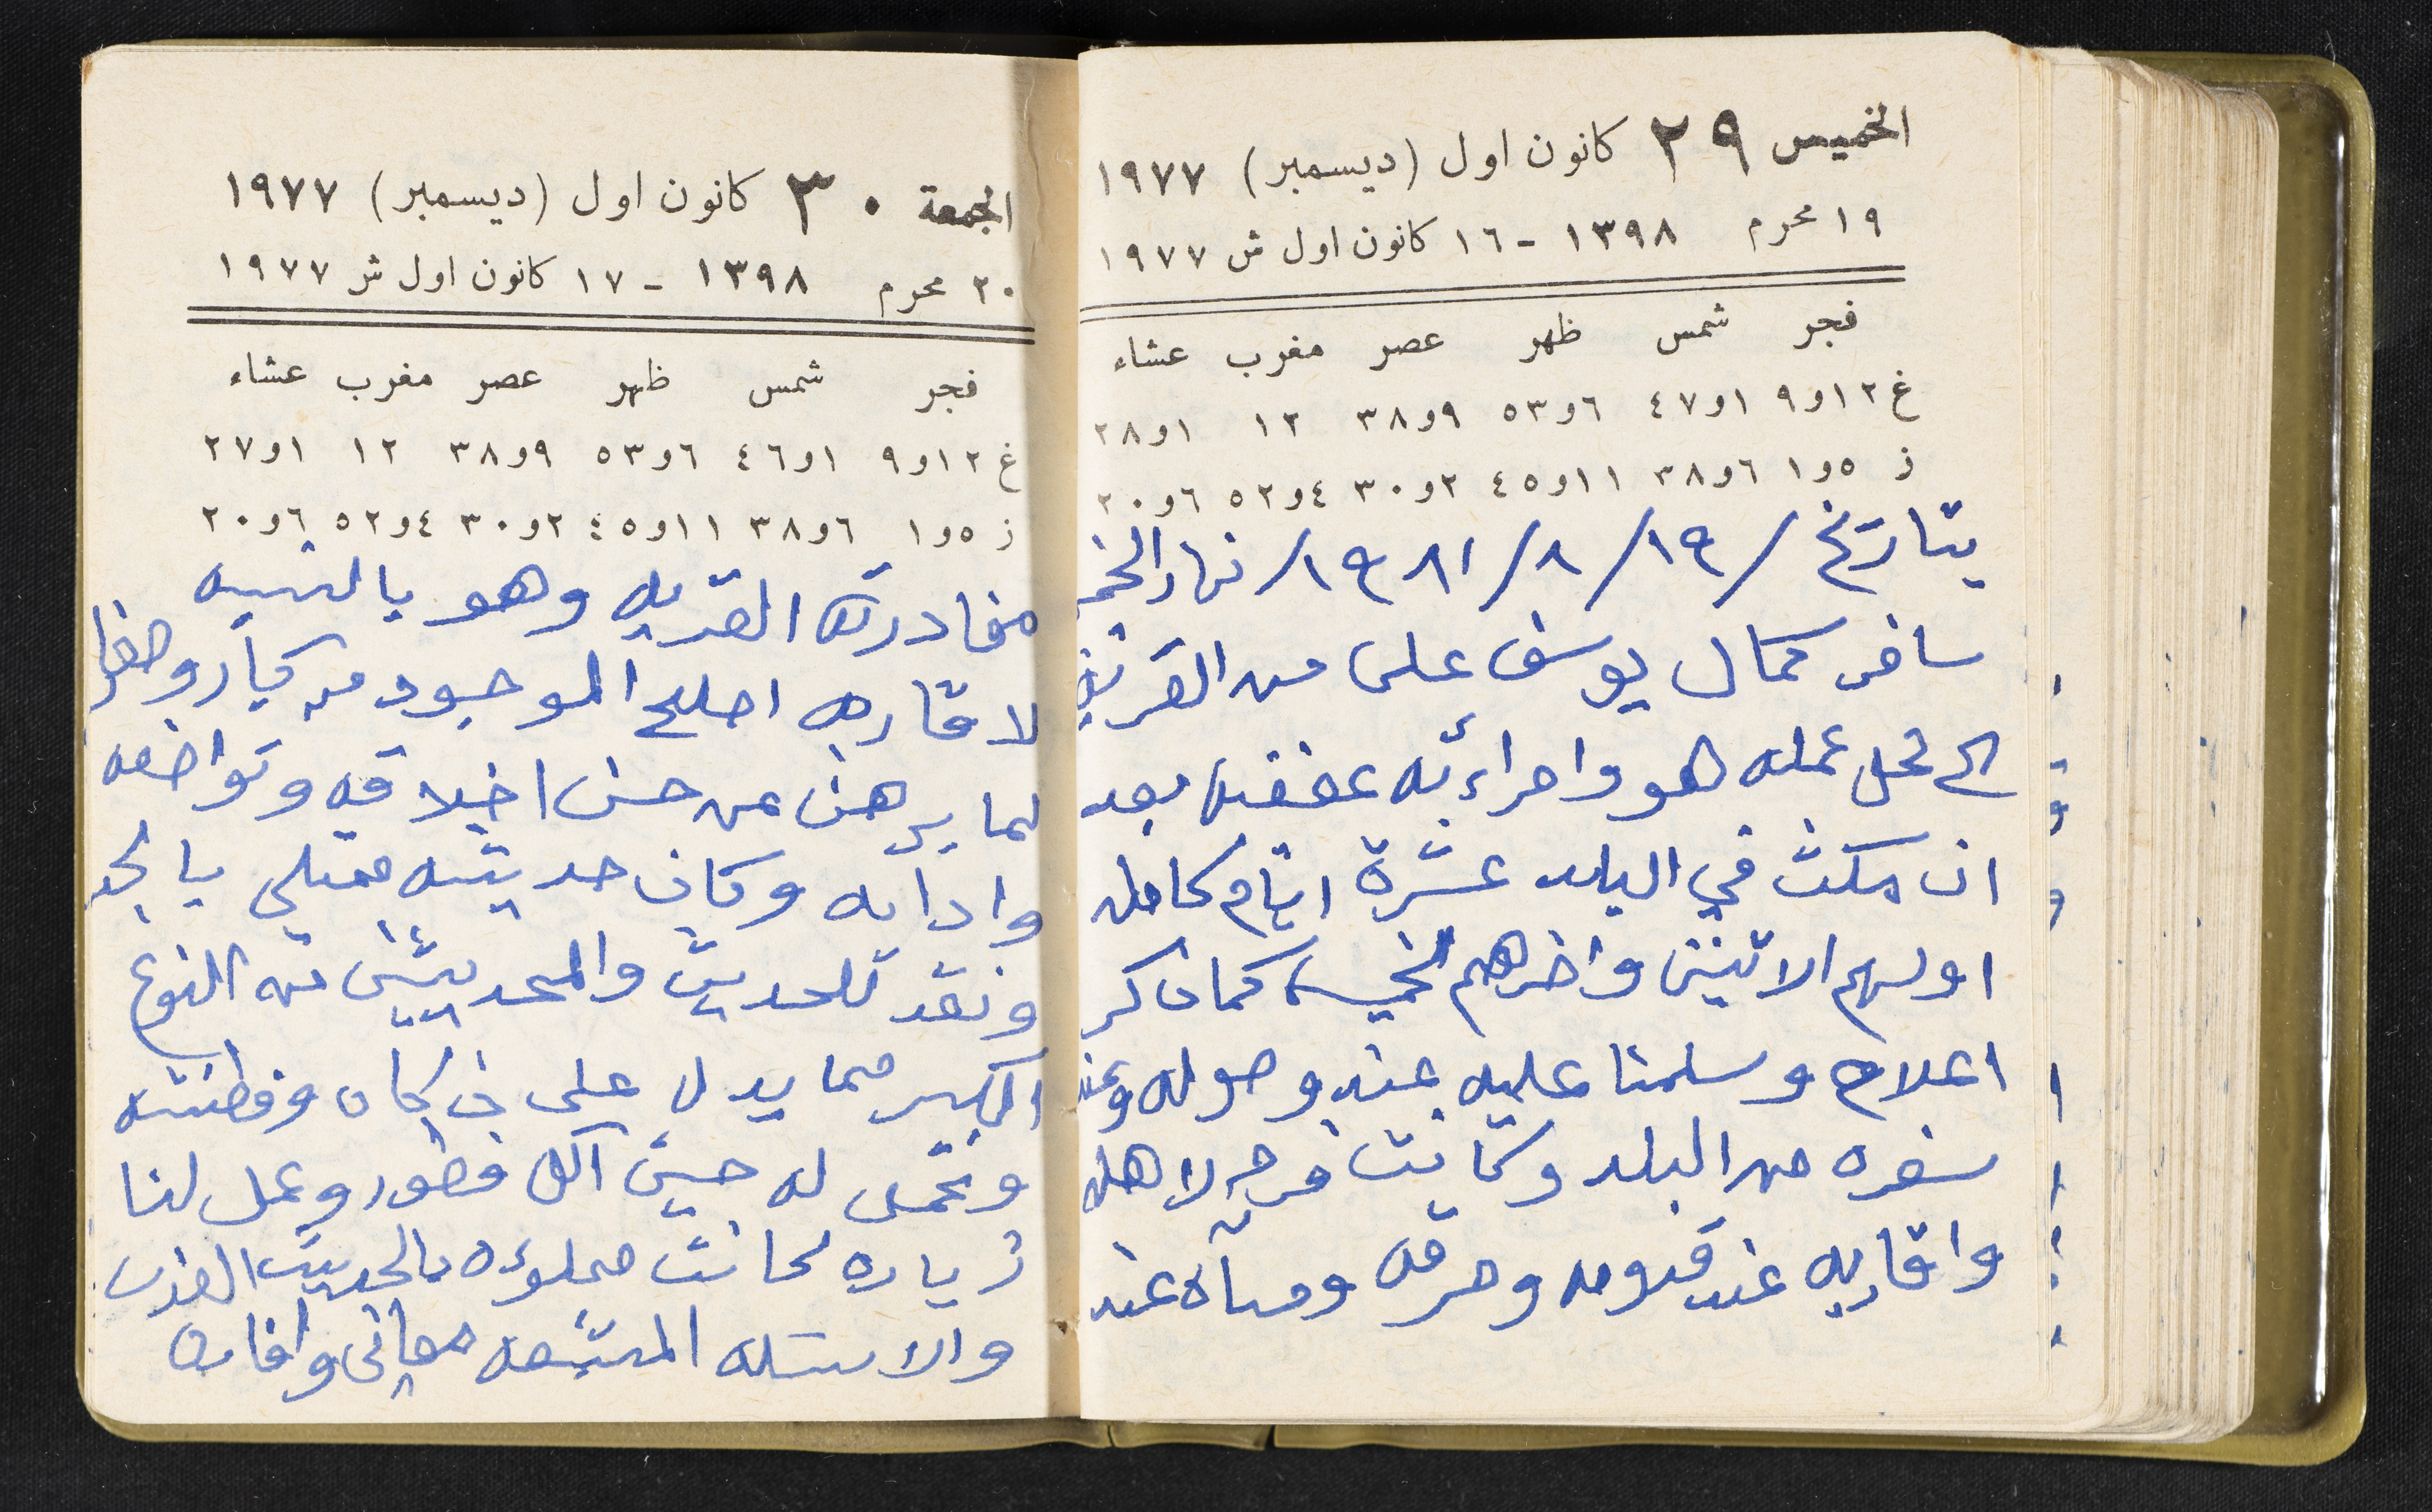 الخميس ٢٩ كانون اول (ديسمبر) ١٩٧٧
١٩ محرم ١٣٩٨ - ١٦ كانون اول ش ١٩٧٧
فجر شمس ظهر عصر مغرب عشاء
غ ١٢و٩ ١و٤٧ ٦و٥٣ ٩و٣٨ ١٢ ١و٢٨
ز ٥و١ ٦و٣٨ ١١و٤٥ ٢و٣٠ ٤و٥٢ ٦و٢٠
بتاريخ /١٩/٨/١٩٨١/ نهار الخم
سافر كمال يوسف علي من القرية
الى محل عمله هو وامرأته عفيفه بعد
ان مكث في البلد عشرة ايام كامله
اولهم الاثنين واخرهم الخميس كما ذكر
اعلاه وسلمنا عليه عند وصوله وعند
سفره من البلد وكانت فرح لاهله
واقاربه عند قدومه وحرقه ومأساه عند
الجمعة ٣٠ كانون اول (ديسمبر) ١٩٧٧
٢٠ محرم ١٣٩٨ - ١٧ كانون اول ش ١٩٧٧
فجر شمس ظهر عصر مغرب عشاء
غ ١٢و٩ ١و٤٦ ٦و٥٣ ٩و٣٨ ١٢ ١و٢٧
ز ٥و١ ٦و٣٨ ١١و٤٥ ٢و٣٠ ٤و٥٢ ٦و٢٠
مغادرته القريه وهو بالنسبه
لاقاربه اصلح الموجود من كبار وصغار
لما يبرهن عن حسن اخلاقه وتواضعه
وادابه وكان حديثه ممتلي بالجد
ونقد للحديث والمحدثين من النوع
الكبير مما يدل على ذكاه وفطنته
وتحمل له حين اكل فطور وعمل لنا
زياره كانت مملوءه بالحديث العذب
والاسئله المشبعه معاني وافاده